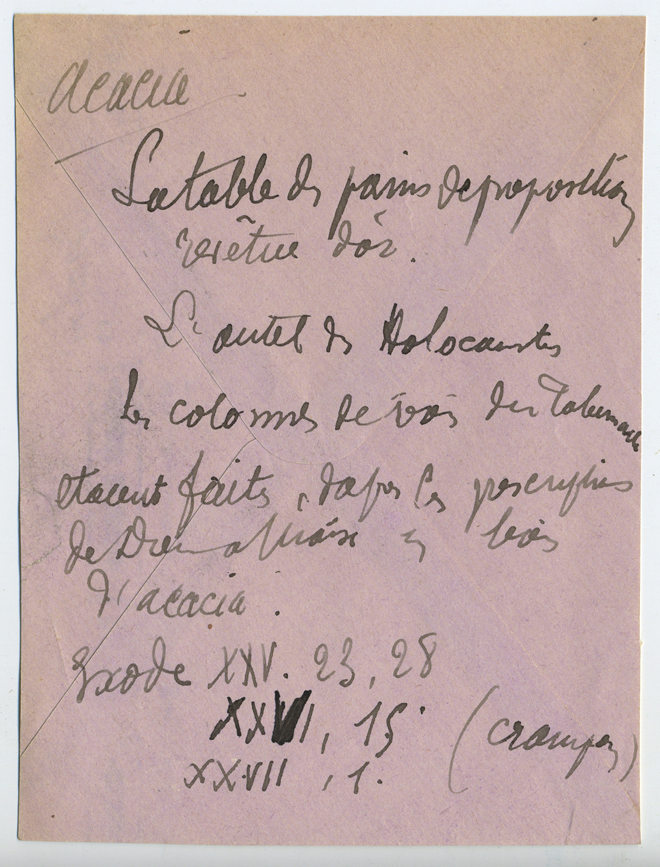 Acacia
La table des pains de proposition
revêtue d'or.
L'autel des Holocaustes
les colonnes de bois du Tabernacle
étaient faits, d'après les prescriptions
de Dieu à Moïse en bois
d'acacia.
Exode XXV. 23, 28
XXVI, 15 (Crampon)
XXVII, 1.